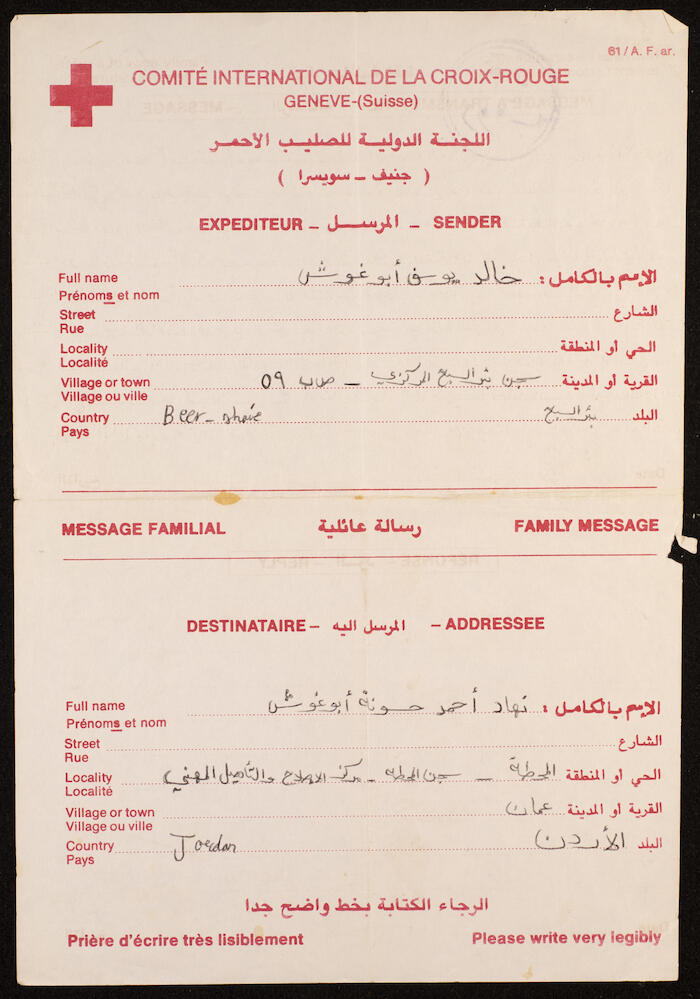 61 / A. F. ar.
COMITÉ INTERNATIONAL DE LA CROIX-ROUGE
GENEVE-(Suisse)
اللجنة الدولية للصليب الاحمر
( جنيف - سويسرا )
EXPEDITEUR - المرسل - SENDER
Full name خالد يوسف أبو غوش الإسم بالكامل :
Prénoms et nom
Street الشارع
Rue
Locality الحي أو المنطقة
Localité
Village or town سجن بئر السبع المركزي - ص.ب 09 القرية أو المدينة
Village ou ville
Country Beer- بئر السبع البلد
Pays
MESSAGE FAMILIAL رسالة عائلية FAMILY MESSAGE
DESTINATAIRE - المرسل اليه - ADDRESSEE
Full name نهاد أحمد حسونة أبو غوش الإسم بالكامل :
Prénoms et nom
Street الشارع
Rue
Locality المحطة - سجن المحطة - مركز الاصلاح والتأهيل المهني الحي أو المنطقة
Localité
Village or town عمان القرية أو المدينة
Village ou ville
Country Jordan الأردن البلد
Pays
الرجاء الكتابة بخط واضح جدا
Prière d'écrire très lisiblement Please write very legibly